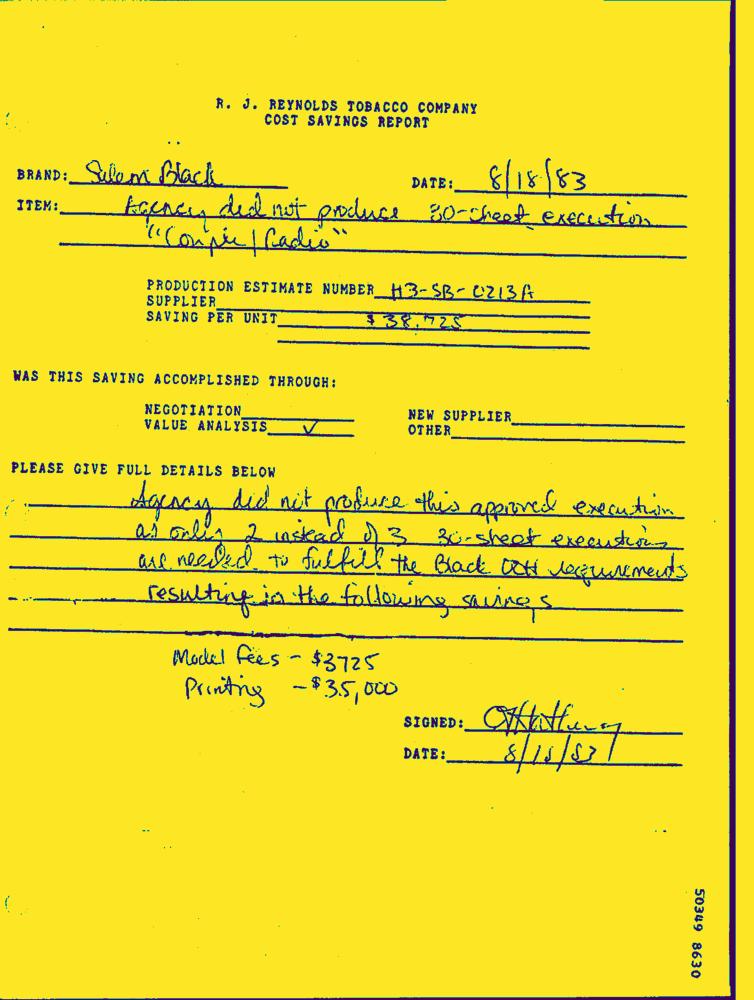 R. J. REYNOLDS TOBACCO COMPANY
COST SAVINGS REPORT
BRAND: Salem Black DATE: 8/18/83
ITEM: Agency did not produce 30-sheet execution
"Couple/Radio"
PRODUCTION ESTIMATE NUMBER H3-SB-0213A
SUPPLIER
SAVING PER UNIT $38,725
WAS THIS SAVING ACCOMPLISHED THROUGH:
NEGOTIATION NEW SUPPLIER
VALUE ANALYSIS ✓ OTHER
PLEASE GIVE FULL DETAILS BELOW
Agency did not produce this approved execution
as only 2 instead of 3 30-sheet executions
are needed to fulfill the Black OOH requirements
resulting in the following savings
Model fees - $3725
Printing - $35,000
SIGNED:
DATE: 8/18/83
50349 8630